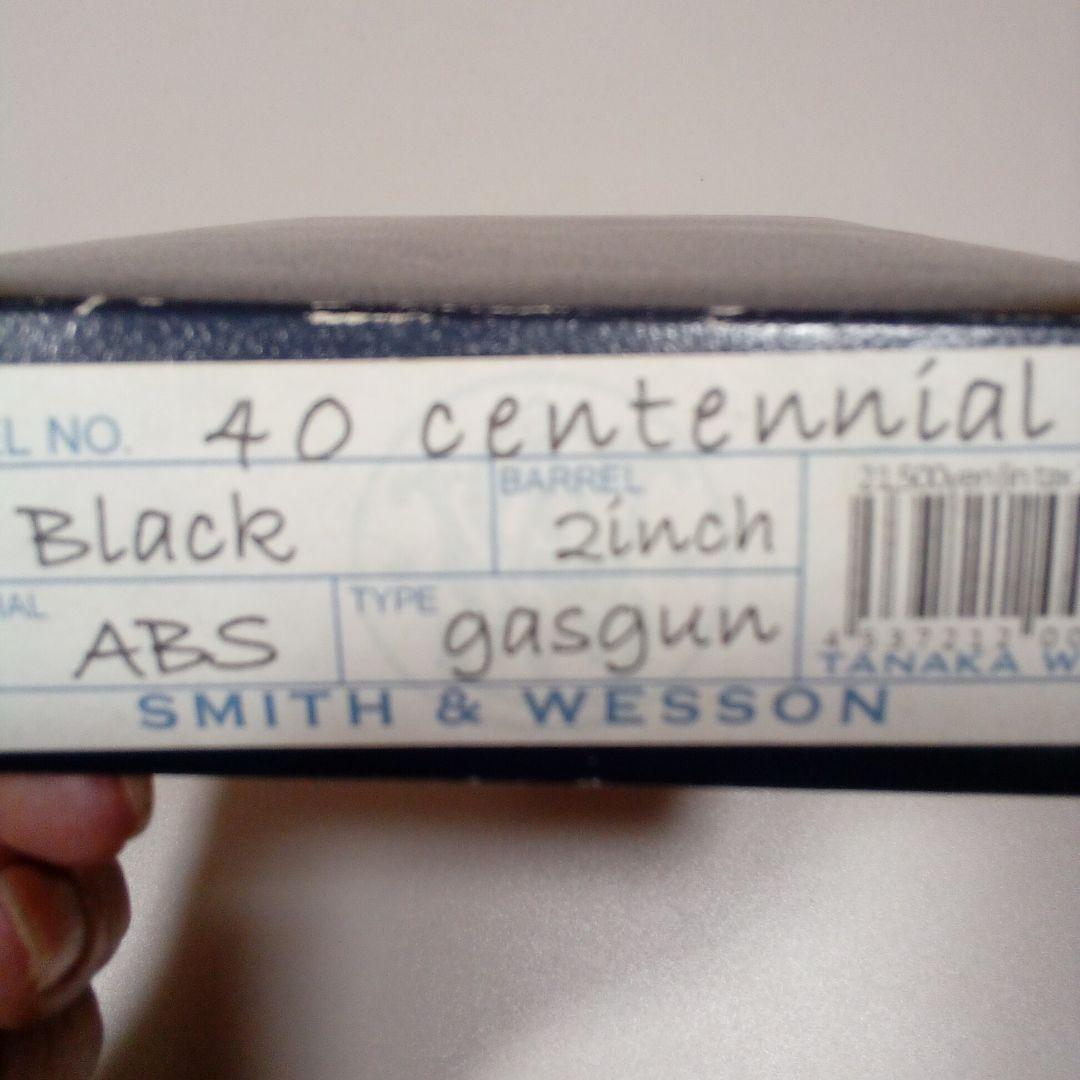 EL NO. 40 centennial
Black
BARREL
2inch
21,500yen(in tax
IAL ABS
TYPE gasgun
4 537212 00
TANAKA W
SMITH & WESSON